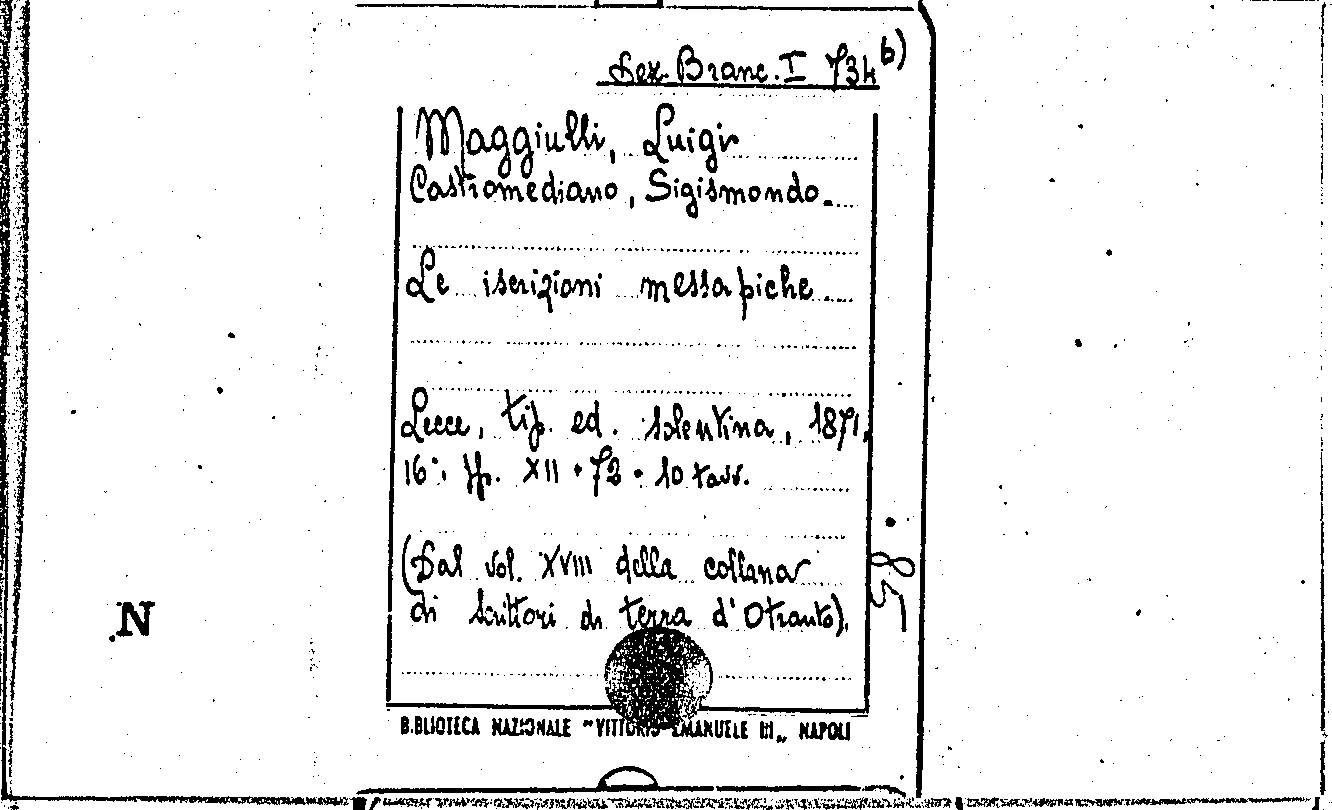 Sez. Branc. I 734 b)
Maggiulli, Luigi
Castromediano, Sigismondo.
Le iscrizioni messapiche
Lecce, tip. ed. salentina, 1871.
16°. pp. XII + 72 + 10 tavv.
(Dal vol. XVIII della collana
di Scrittori di terra d'Otranto).
N
BIBLIOTECA NAZIONALE "VITTORIO EMANUELE III" NAPOLI